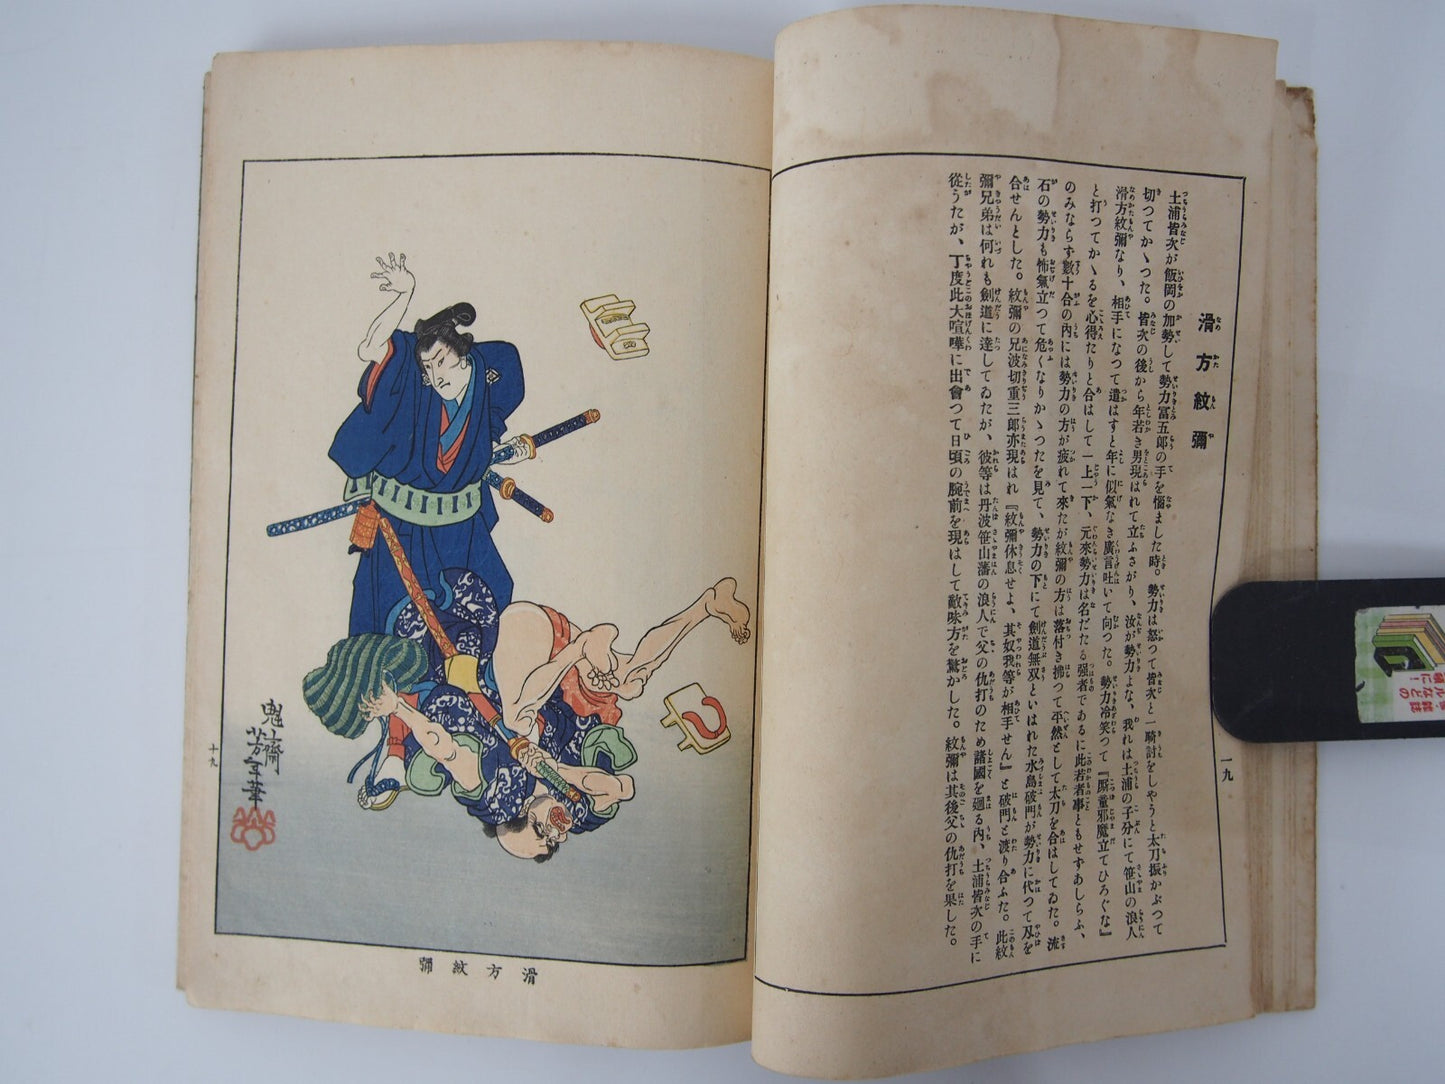 滑方紋彌
土浦皆次が飯岡の加勢して勢力冨五郎の手を惱ました時。勢力は怒つて皆次と一騎討をしやうと太刀振かぶつて
切つてかゝつた。皆次の後から年若き男現はれて立ふさがり、汝が勢力よな、我れは土浦の子分にて笹山の浪人
滑方紋彌なり、相手になつて遣はすと年に似氣なき廣言吐いて向つた。勢力冷笑つて『小童邪魔立てひろぐな』
と打つてかゝるを心得たりと合はして一上一下、元來勢力は名だたる强者であるに此若者事ともせずあしらふ、
のみならず數十合の內には勢力の方が疲れて來たが紋彌の方は落付き拂つて平然として太刀を合はしてゐた。流
石の勢力も怖氣立つて危くなりかゝつたを見て、勢力の下にて劍道無双といはれた水島破門が勢力に代つて刄を
合せんとした。紋彌の兄波切重三郎亦現はれ『紋彌休息せよ、其奴我等が相手せん』と破門と渡り合ふた。此紋
彌兄弟は何れも劍道に達してゐたが、彼等は丹波笹山藩の浪人で父の仇打のため諸國を廻る內、土浦皆次の手に
從うたが、丁度此大喧嘩に出會つて日頃の腕前を現はして敵味方を驚かした。紋彌は其後父の仇打を果した。
一九
魁齋芳年筆
十九
滑方紋彌